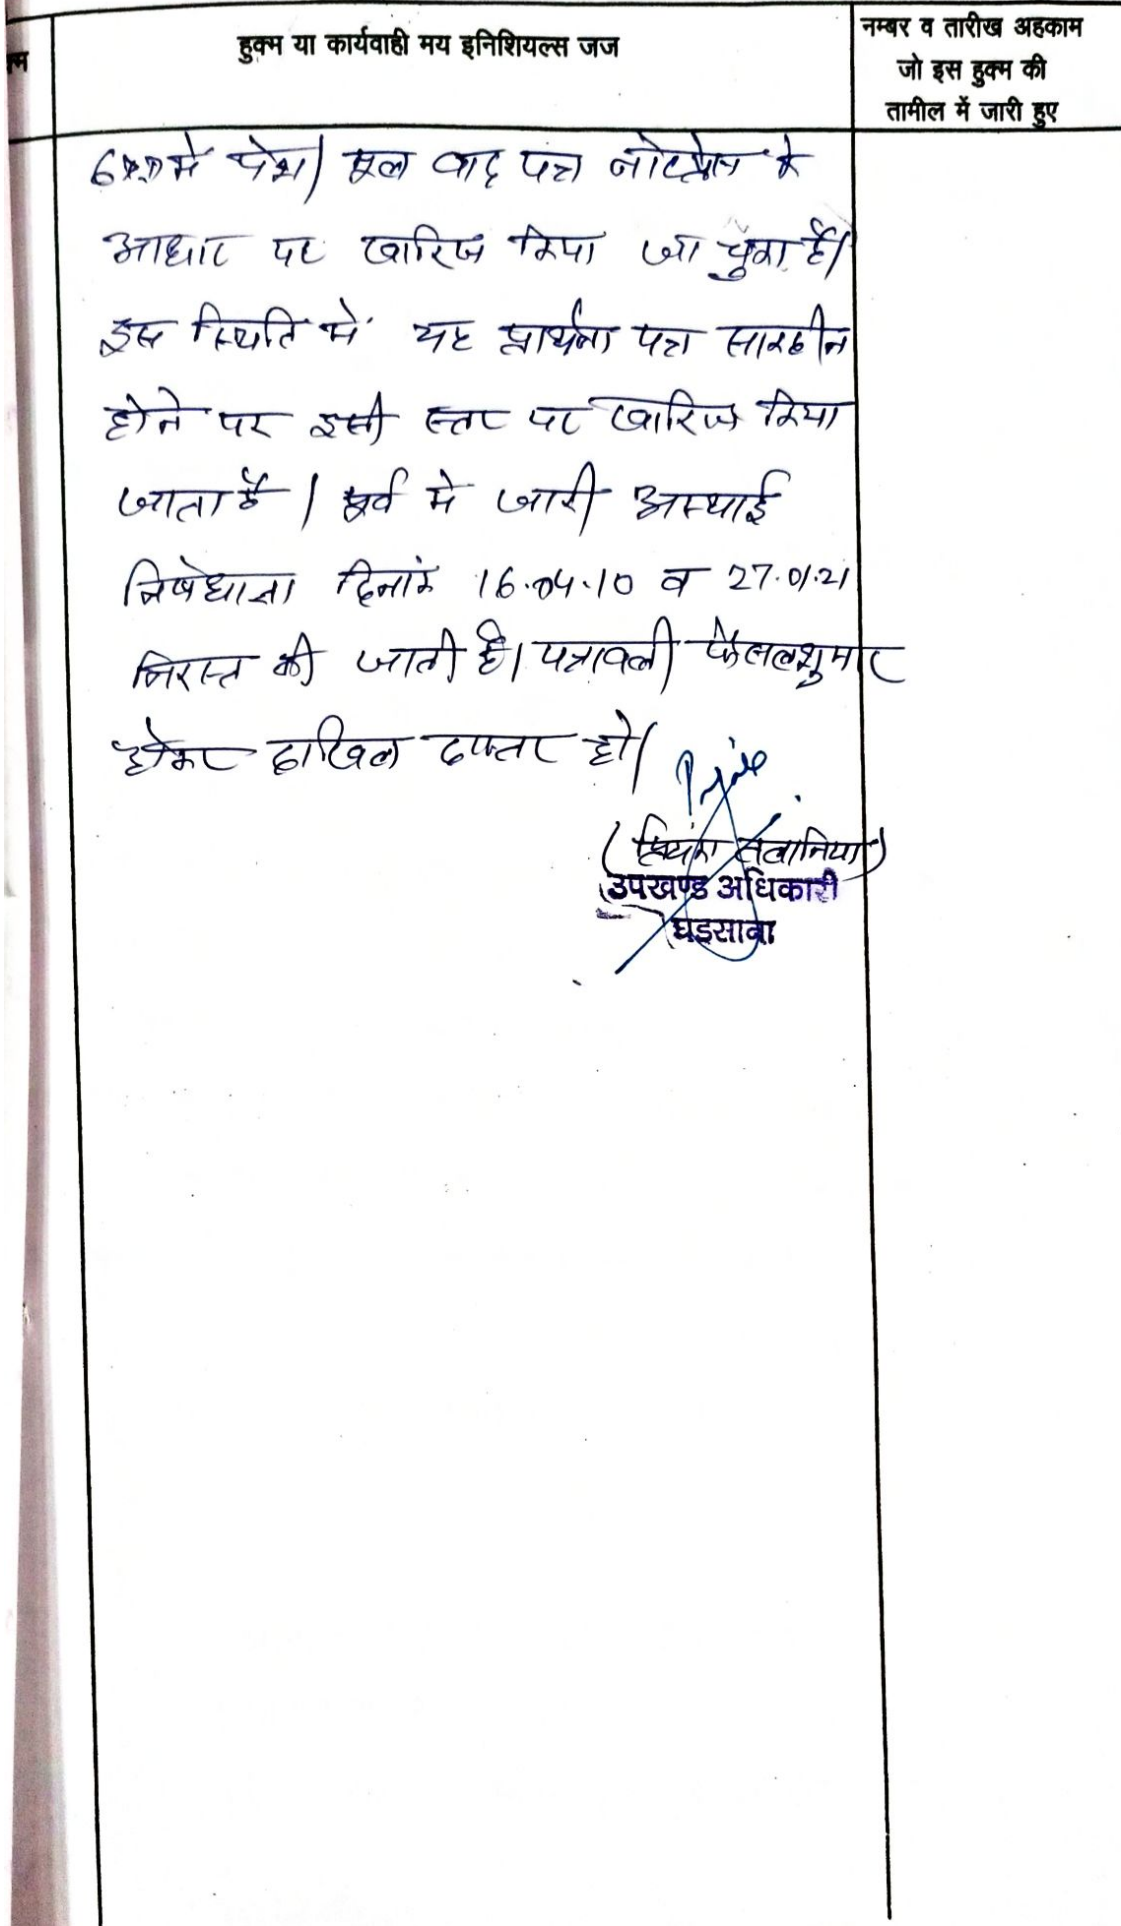 क्म
हुक्म या कार्यवाही मय इनिशियल्स जज
नम्बर व तारीख अहकाम
जो इस हुक्म की
तामील में जारी हुए
में पेश। मूल वाद पत्र नोटप्रेस के
आधार पर खारिज किया जा चुका है।
इस स्थिति में यह प्रार्थना पत्र सारहीन
होने पर इसी स्तर पर खारिज किया
जाता है। पूर्व में जारी अस्थाई
निषेधाज्ञा दिनांक 16.04.10 व 27.01.21
निरस्त की जाती है। पत्रावली फैसलशुमार
होकर दाखिल दफ्तर हो।
(प्रियंका तलानिया)
उपखण्ड अधिकारी
घड़साना